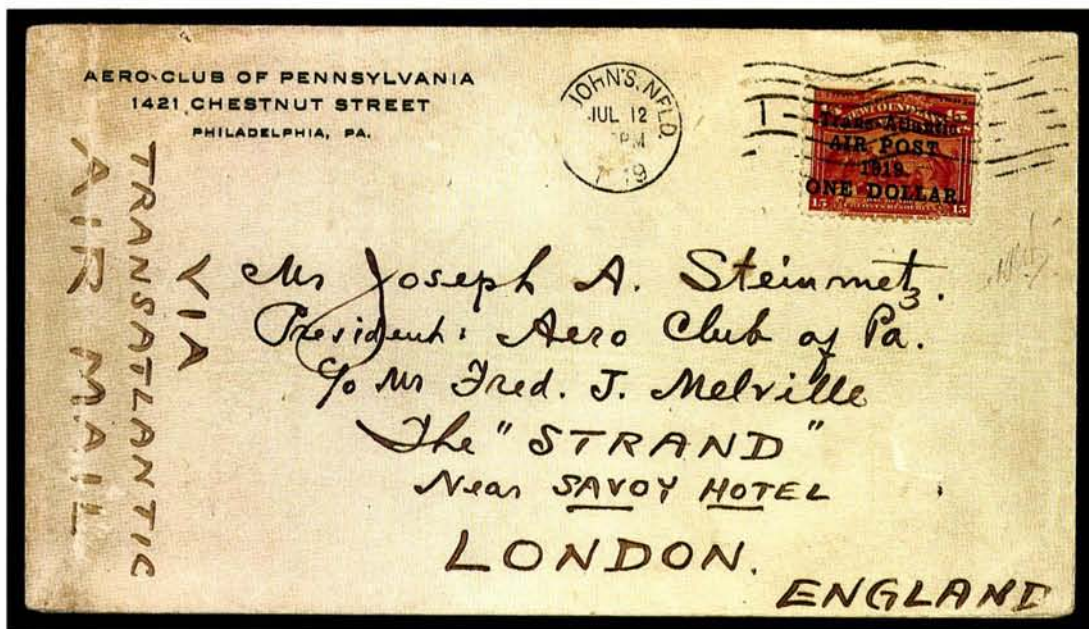 AERO CLUB OF PENNSYLVANIA
1421 CHESTNUT STREET
PHILADELPHIA, PA.
JOHN'S, NFLD.
JUL 12
PM
19
15 NEWFOUNDLAND 15
Trans-Atlantic
AIR POST
1919
ONE DOLLAR.
15 15
VIA
TRANSATLANTIC
AIR MAIL
Mr Joseph A. Steinmetz.
President: Aero Club of Pa.
c/o Mr Fred. J. Melville
The "STRAND"
Near SAVOY HOTEL
LONDON.
ENGLAND